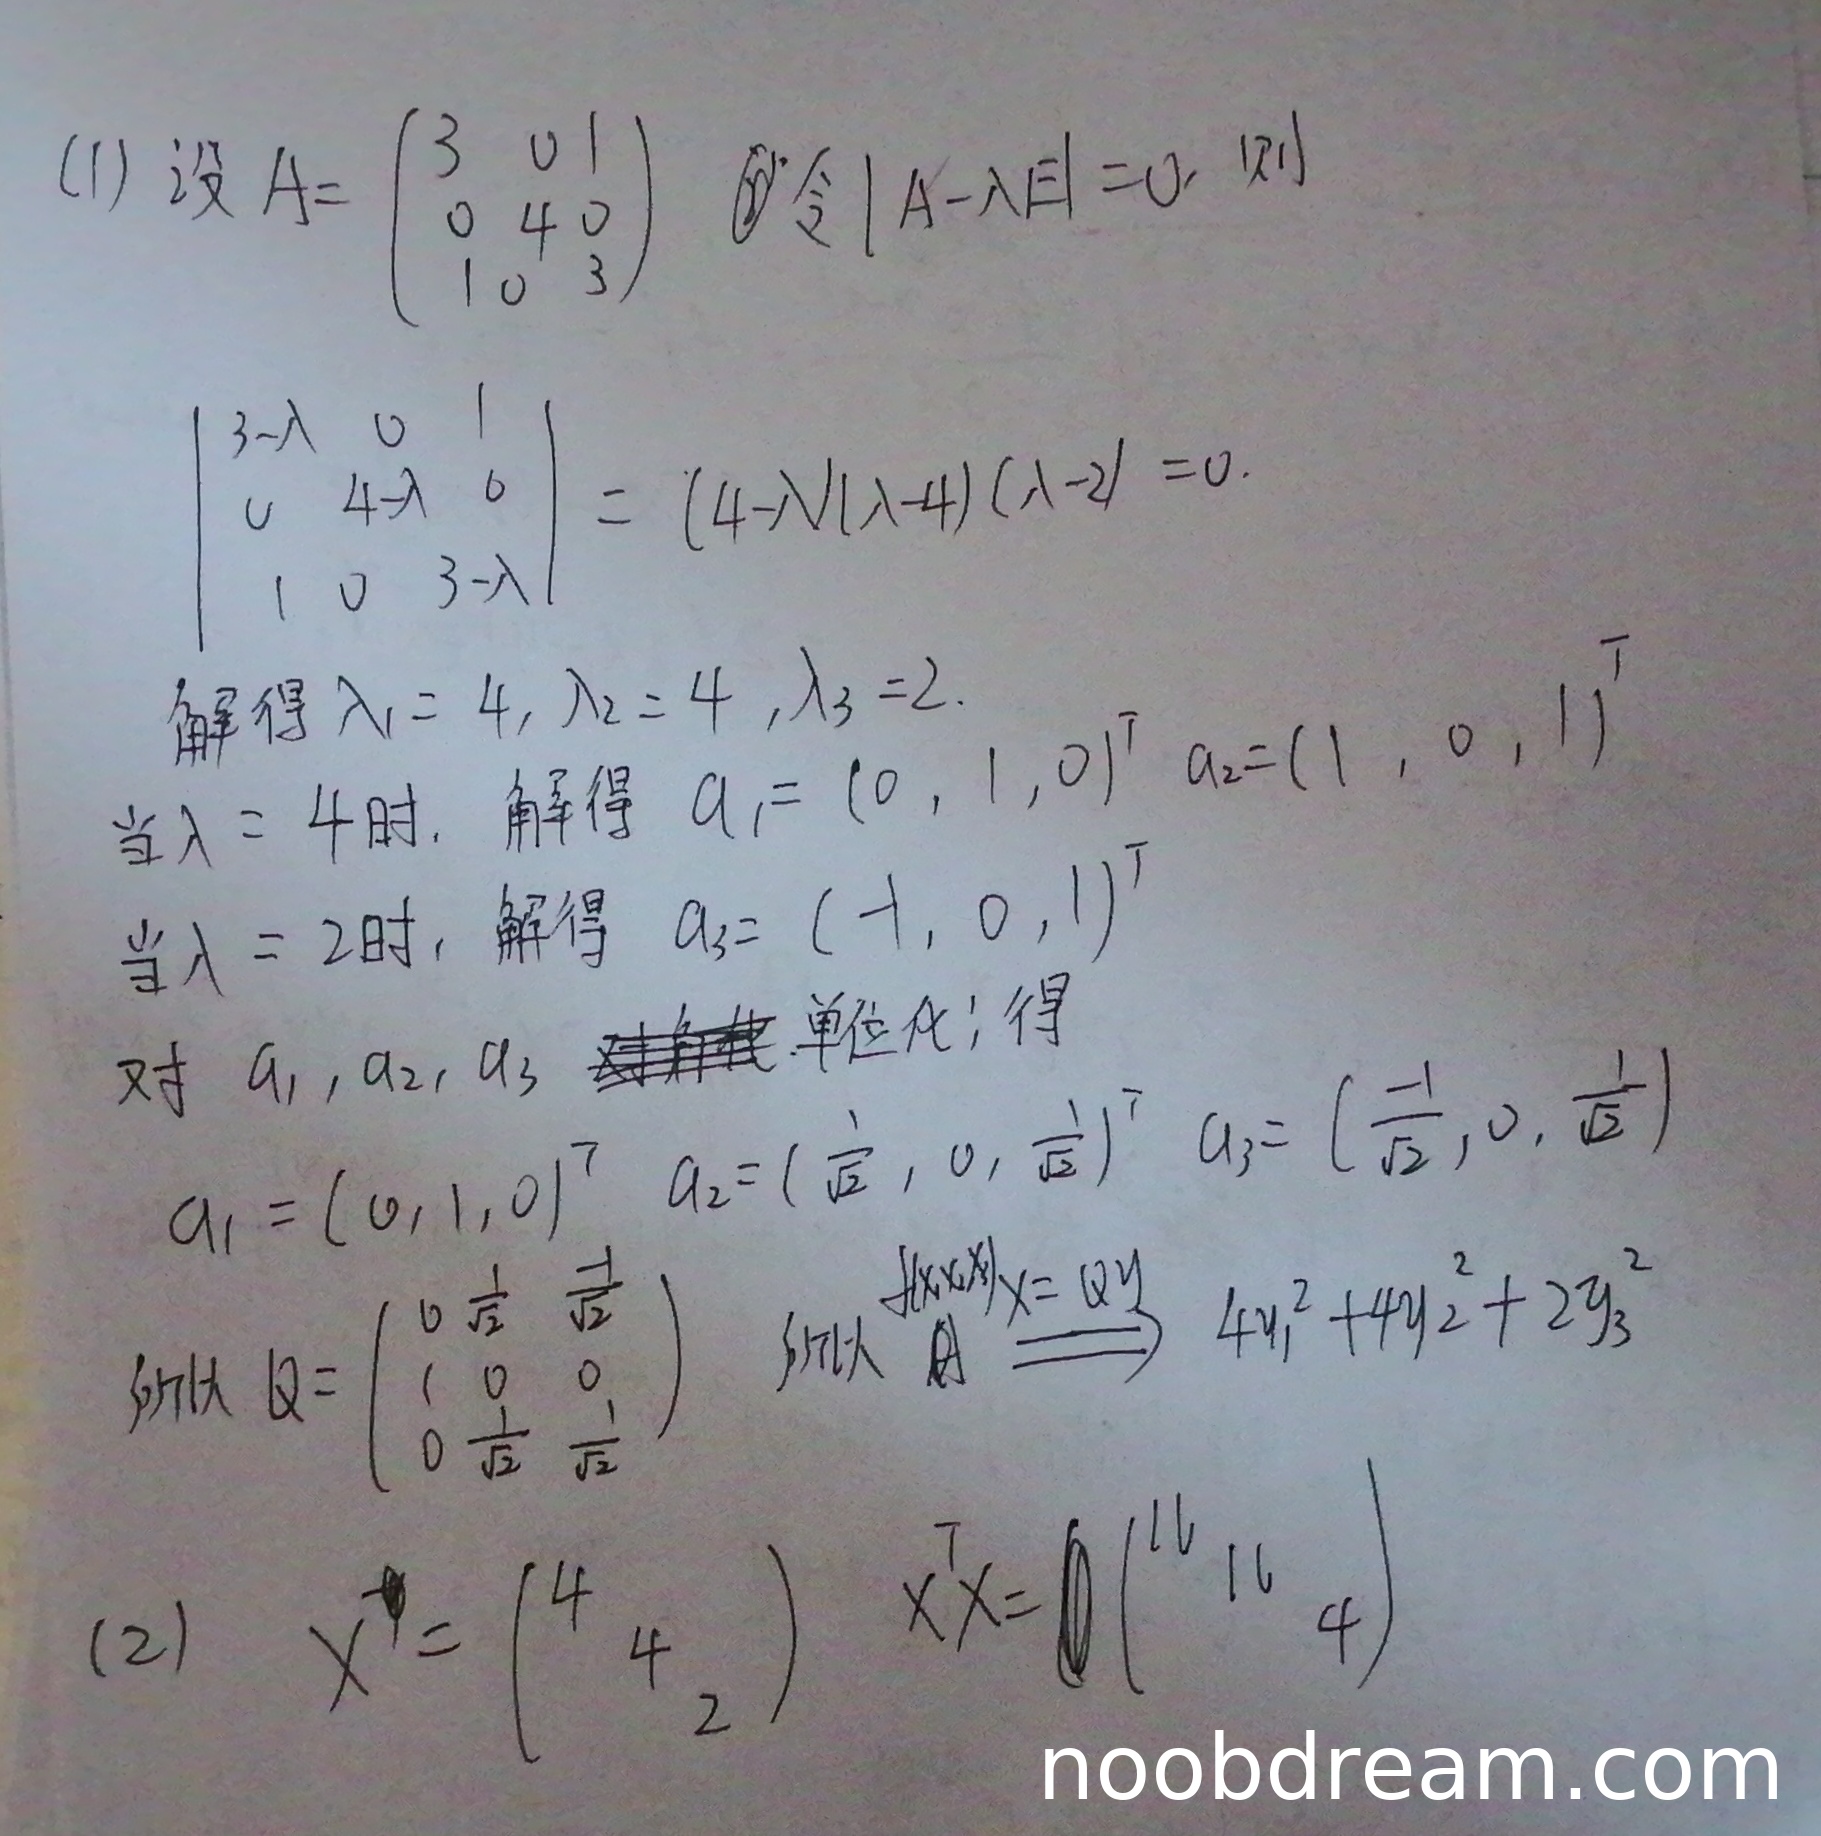 (1) 设 A= (3 0 1
0 4 0
1 0 3) 令|A-λE|=0, 则
|3-λ 0 1
0 4-λ 0
1 0 3-λ| = (4-λ)(λ-4)(λ-2) =0.
解得 λ₁= 4, λ₂= 4 , λ₃ =2.
当λ = 4时. 解得 a₁= (0 , 1 , 0)ᵀ a₂=(1 , 0 , 1)ᵀ
当λ = 2时, 解得 a₃= (-1, 0 , 1)ᵀ
对 a₁ , a₂, a₃ 单位化; 得
a₁ = (0, 1, 0)ᵀ a₂=(1/√2 , 0, 1/√2)ᵀ a₃= (-1/√2 , 0, 1/√2)
所以 Q= (0 1/√2 -1/√2
1 0 0
0 1/√2 1/√2) 所以 f(x₁x₂x₃) x=Qy ⟹ 4y₁²+4y₂²+2y₃²
(2) X = (4
4
2) XᵀX= (16
16
4)
noobdream.com